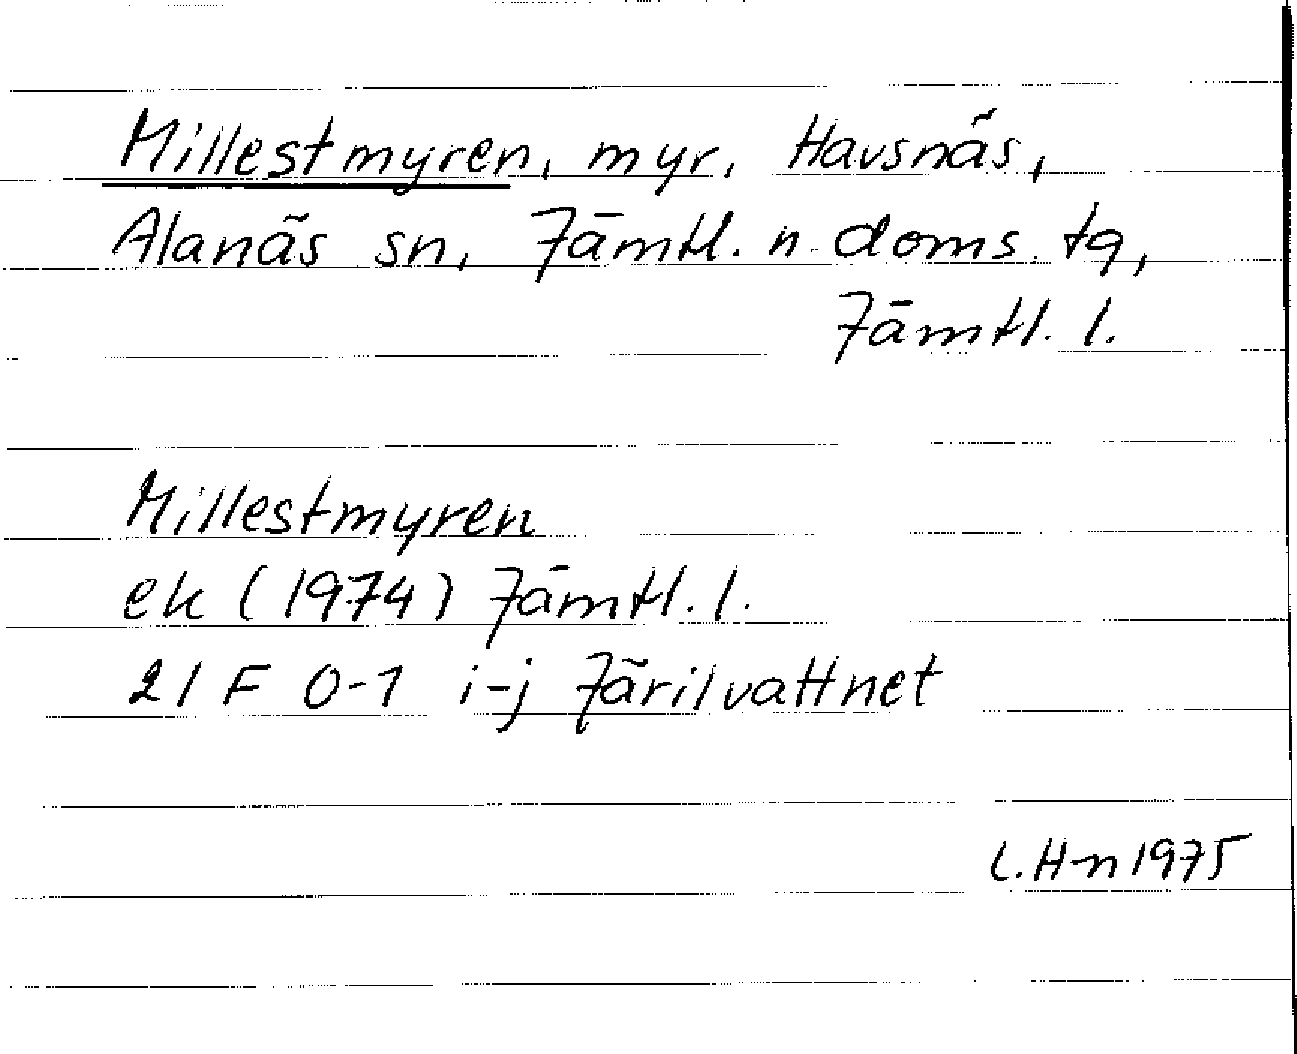 Millestmyren, myr, Havsnäs,
Alanäs sn, Jämtl. n. doms. tg,
Jämtl. l.
Millestmyren
ek (1974) Jämtl. l.
21 F 0-1 i-j Järilvattnet
L. H-n 1975